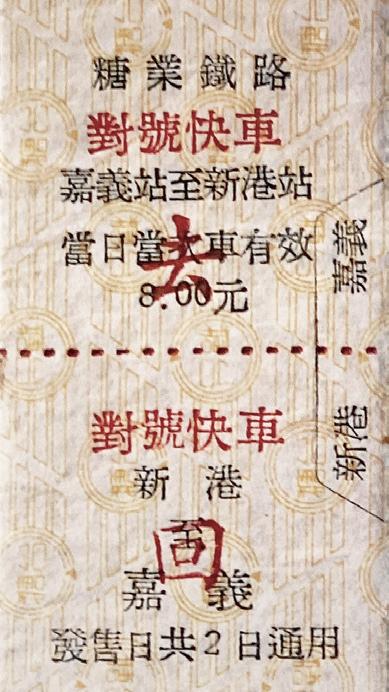 糖業鐵路
對號快車
嘉義站至新港站
當日當次車有效
去
8.00元
嘉義
對號快車
新港
新港
至
回
嘉義
發售日共2日通用